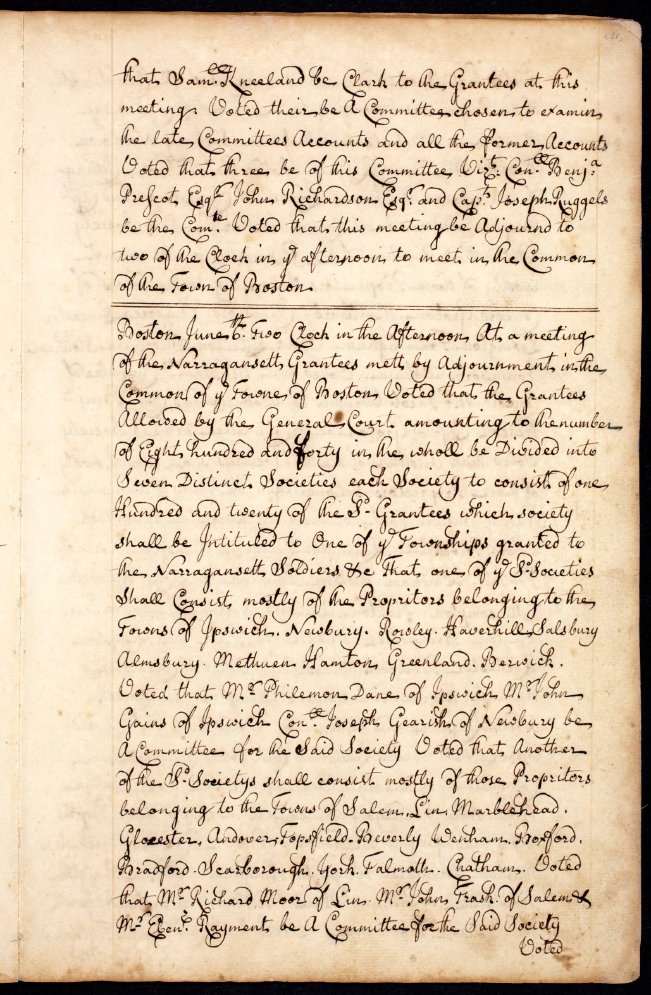 that Samll Kneeland be Clark to the Grantees at this
meeting Voted their be A Committee chosen to examin
the late Committees Accounts and all the former Accounts
Voted that three be of this Committee Vizt. Conll. Benja
Prescot Esqr John Richardson Esqr. and Capt. Joseph Ruggels
be the Comte. Voted that this meeting be Adjournd to
two of the Clock in ye afternoon to meet in the Common
of the Town of Boston
Boston June 6th. Two Clock in the Afternoon At a meeting
of the Narragansett Grantees mett by Adjournment in the
Common of ye Towne of Boston Voted that the Grantees
Allowed by the General Court amounting to the number
of Eight hundred and forty in the wholl be Divided into
Seven Distinct Societies each Society to consist of one
Hundred and twenty of the Sd. Grantees which society
shall be Intituled to One of ye Townships granted to
the Narragansett Soldiers &c that one of ye Sd. Societies
Shall Consist mostly of the Propritors belonging to the
Towns of Ipswich. Newbury. Rowley. Haverhill Salsbury
Almsbury. Methuen Hamton Greenland. Berwick.
Voted that Mr Philemon Dane of Ipswich Mr John
Gains of Ipswich Conll Joseph Gearish of Newbury be
A Committee for the Said Society Voted that Another
of the Sd. Societys shall consist mostly of those Propritors
belonging to the Towns of Salem. Lin Marblehead.
Glocester. Andover. Topsfield. Beverly Wenham. Boxford.
Bradford. Scarborough. York. Falmoth. Chatham. Voted
that Mr Richard Moor of Lin. Mr John Trask. of Salem &
Mr Ebenr Rayment be A Committee for the Said Society
Voted